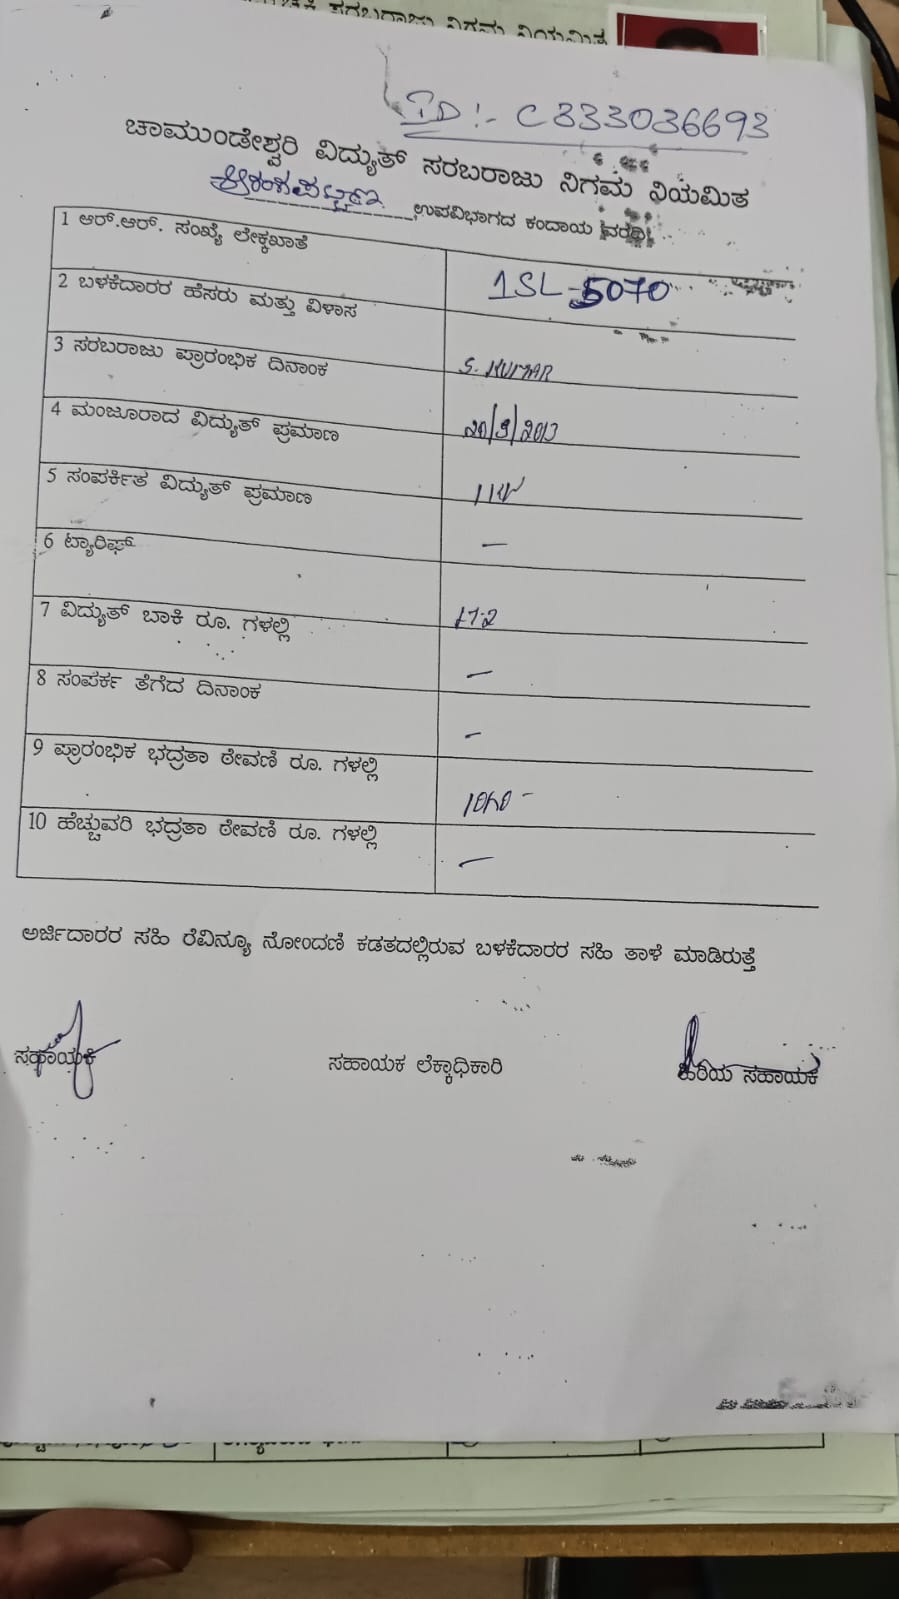 ID :- C333036693
ಚಾಮುಂಡೇಶ್ವರಿ ವಿದ್ಯುತ್ ಸರಬರಾಜು ನಿಗಮ ನಿಯಮಿತ
ಶ್ರೀರಂಗಪಟ್ಟಣ ಉಪವಿಭಾಗದ ಕಂದಾಯ ವರದಿ
1 ಆರ್.ಆರ್. ಸಂಖ್ಯೆ ಲೆಕ್ಕಖಾತೆ 1SL-5070
2 ಬಳಕೆದಾರರ ಹೆಸರು ಮತ್ತು ವಿಳಾಸ S. KUMAR
3 ಸರಬರಾಜು ಪ್ರಾರಂಭಿಕ ದಿನಾಂಕ
4 ಮಂಜೂರಾದ ವಿದ್ಯುತ್ ಪ್ರಮಾಣ
5 ಸಂಪರ್ಕಿತ ವಿದ್ಯುತ್ ಪ್ರಮಾಣ —
6 ಟ್ಯಾರಿಫ್
7 ವಿದ್ಯುತ್ ಬಾಕಿ ರೂ. ಗಳಲ್ಲಿ —
8 ಸಂಪರ್ಕ ತೆಗೆದ ದಿನಾಂಕ —
9 ಪ್ರಾರಂಭಿಕ ಭದ್ರತಾ ಠೇವಣಿ ರೂ. ಗಳಲ್ಲಿ
10 ಹೆಚ್ಚುವರಿ ಭದ್ರತಾ ಠೇವಣಿ ರೂ. ಗಳಲ್ಲಿ —
ಅರ್ಜಿದಾರರ ಸಹಿ ರೆವಿನ್ಯೂ ನೋಂದಣಿ ಕಡತದಲ್ಲಿರುವ ಬಳಕೆದಾರರ ಸಹಿ ತಾಳೆ ಮಾಡಿರುತ್ತೆ
ಸಹಾಯಕಿ ಸಹಾಯಕ ಲೆಕ್ಕಾಧಿಕಾರಿ ಹಿರಿಯ ಸಹಾಯಕ